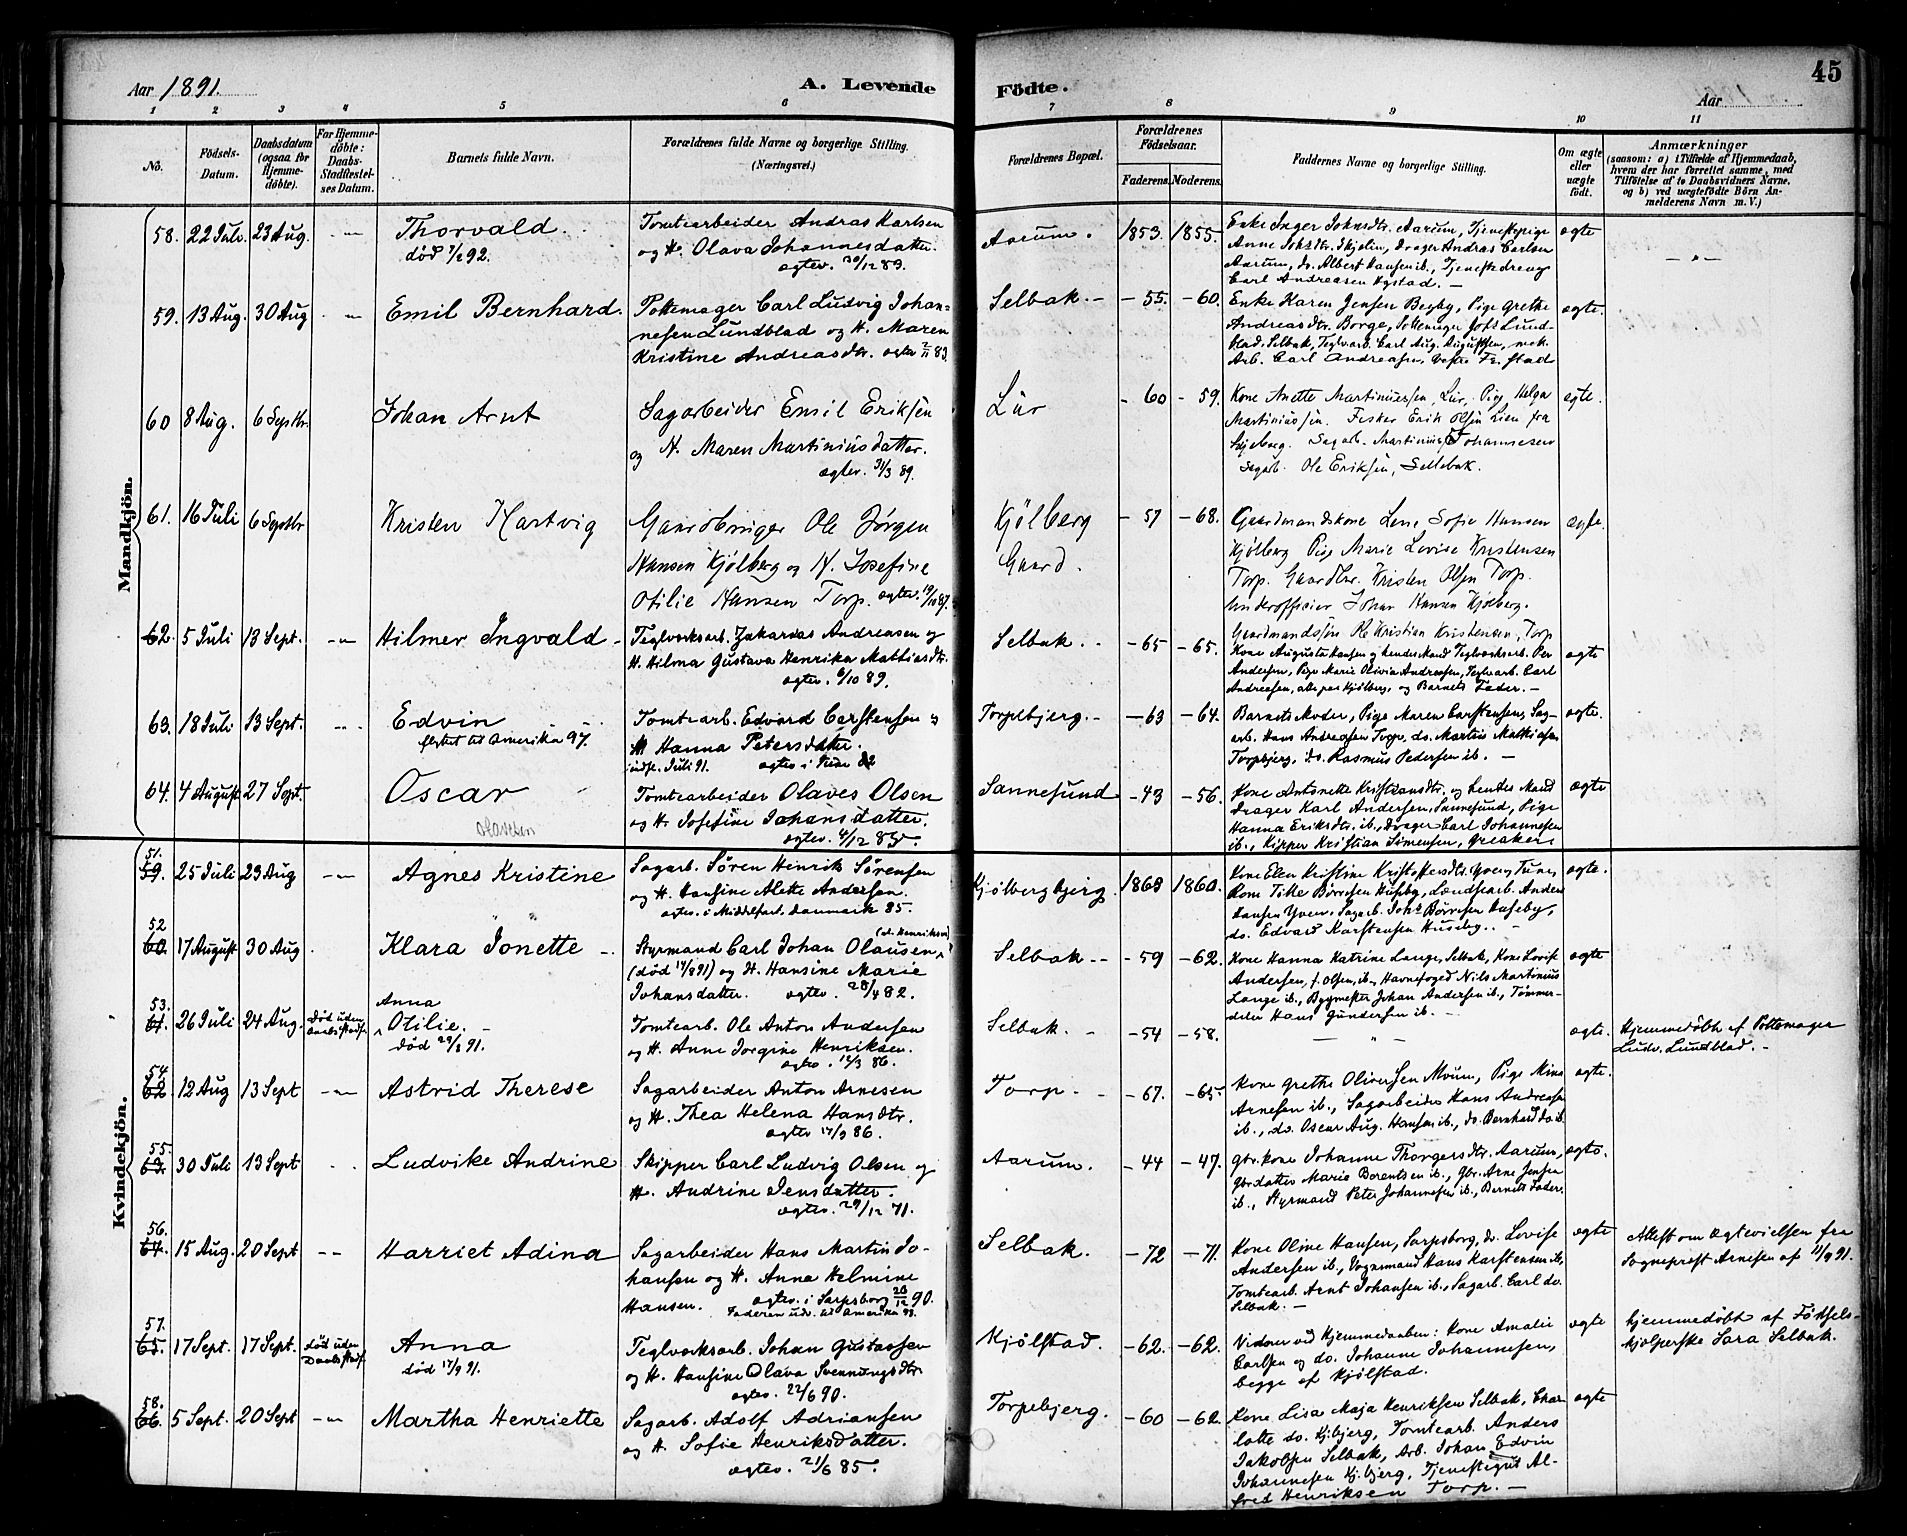 45
Aar 1891.
A. Levende Födte.
Aar
1 2 3 4 5 6 7 8 9 10 11
No.
Födsels-Datum.
Daabsdatum (ogsaa for Hjemmedöbte).
For Hjemmedöbte: Daabs-Stadfestelses Datum.
Barnets fulde Navn.
Forældrenes fulde Navne og borgerlige Stilling. (Næringsvei.)
Forældrenes Bopæl.
Forældrenes Födselsaar.
Faderens. Moderens.
Faddernes Navne og borgerlige Stilling.
Om ægte eller uægte födt.
Anmærkninger
(saasom: a) i Tilfælde af Hjemmedaab,
hvem der har forrettet samme, med
Tilföielse af to Daabsvidners Navne,
og b) ved uægtefödte Börn Anmelderens Navn m. V.)
Mandkjön.
58. 22 Juli 23 Aug. -"- Thorvald. Tomtearbeider Andras Karlsen Aarum. 1853. 1855. Enke Inger Johnsdtr. Aarum, Tjenestepige ægte
død 7/2 92. og H. Olava Johannesdatter. Anne Johsdtr. Skjolin, Drager Andras Carlsen
ægtev. 30/12 83. Aarum, do. Albert Hansen ib., Tjenestedreng
Carl Andreasen Nystad. -
59. 13 Aug. 30 Aug -"- Emil Bernhard. Pottemager Carl Ludvig Johan- Selbak. - - 55. - 60. Enke Karen Jensen Begby, Pige Grethe ægte.
nesen Lundblad og H. Maren Andreasdtr. Borge, Pottemager Johs Lund-
Kristine Andreasdtr. ægtev 2/11 83. blad, Selbak, Teglværksarb. Carl Aug. Augustsen,
Arb. Carl Andreasen, Vestre Fr.stad
60 8 Aug. 6 Septbr. Johan Arnt Sagarbeider Emil Eriksen Lür - 60 - 59. Kone Anette Martiniussen, Lür, Pige Helga ægte.
og H. Maren Martiniusdatter. Martiniussen. Fisker Erik Olsen Lien fra
ægtev. 31/3 89. Skjeberg. Sagarb. Martinius Johannesen
Sagarb. Ole Eriksen, Sellebak.
61. 16 Juli 6 Septbr Kristen Hartvig Gaardbruger Ole Jørgen Kjölberg - 57 - 68. Gaardmandskone Lene Sofie Hansen ægte.
Hansen Kjølberg og H. Josefine Gaard. Kjölberg Pige Marie Lovise Kristensen
Otilie Hansen Torp. ægtev. 19/10 87. Torp. Gaardbr. Kristen Olsen Torp.
Underofficier Johan Hansen Kjölberg.
Gaardmandssön Ole Kristian Kristensen, Torp
62. 5 Juli 13 Sept. -"- Hilmer Ingvald - Teglværksarb. Jakardas Andreasen og Selbak. - - 65 - 65. Kone Augusta Hansen og hendes Mand Teglværksarb. Per ægte
H. Hilma Gustava Henrika Mathiasdtr. Andersen, Pige Marie Olivia Andreasen, Teglværksarb. Carl
ægtev. 6/10 89. Andreasen, alle paa Kjölberg, og Barnets Fader. -
63. 18 Juli 13 Sept. -"- Edvin Tomtearb. Edvard Carstensen og Torpebjerg. - - 63 - 64. Barnets Moder, Pige Maren Carstensen, Sag- ægte.
flyttet til Amerika 97. H. Hanna Petersdatter. arb. Hans Andreasen Torp, do. Martin Mathiasen
indfl. Juli 91. ægtev i 82 Torpebjerg, do. Rasmus Pedersen ib. -
64. 4 August 27 Sept. Oscar Tomtearbeider Olaves Olsen Sannesund - 43 - 56. Kone Antonette Kristiansdtr. og hendes Mand ægte
Olavesen og H. Josefine Johansdatter. Drager Karl Andersen, Sannesund, Pige
ægtev. 4/12 85. Hanna Eriksdtr. ib., Drager Carl Johannesen
ib., Kipper Kristian Simensen, Greaker.
Kvindekjön.
51. 59. 25 Juli 23 Aug -"- Agnes Kristine Sagarb. Sören Henrik Sörensen Kjölbergbjerg. 1863 1860. Kone Ellen Kristine Kristoffersdtr. Yven, Tune, ægte.
og H. Hansine Alette Andersen. Kone Tilla Börresen Huseby, Landsarb. Anders
ægtev. i Middelfart, Danmark 85. Hansen Yven, Sagarb. Johs Börresen Huseby,
do. Edvard Karstensen Huseby.
52 60. 17 August 30 Aug Klara Jonette - Styrmand Carl Johan Olausen, (al. Henriksen) Selbak. - - 59 - 62. Kone Hanna Katrine Lange, Selbak, Kone Lovise ægte
(død 17/8 91) og H. Hansine Marie Andersen, f. Olsen, ib., Havnefoged Nils Martinius
Johansdatter. ægtev. 28/4 82. Lange ib., Bygmester Johan Andersen ib., Tömmer-
deler Hans Gundersen ib. -
53. 61. 26 Juli 24 Aug. Død uden Daabsstadf. Anna Otilie. Tomtearb. Ole Anton Andersen Selbak. - - 54 - 58. - " - ægte. Hjemmedöbt af Pottemager
død 29/8 91. og H. Anne Jorgine Henriksen. Ludv. Lundblad. -
ægtev. 12/3 86.
54. 62. 12 Aug 13 Sept -"- Astrid Therese Sagarbeider Anton Arnesen Torp. - - 67. - 65 Kone Grethe Oliversen Moum, Pige Mina ægte.
og H. Thea Helena Hansdtr. Arnesen ib., Sagarbeider Hans Andreasen
ægtev 17/9 86. ib., do. Oscar Aug. Hansen ib., do. Bernhard do. ib.
55. 63. 30 Juli 13 Sept Ludvike Andrine Skipper Carl Ludvig Olsen og Aarum. - 44 - 47. Gbr.kone Johanne Thorgersdtr. Aarum, ægte.
H. Andrine Jensdatter. Gbrdatter Marie Borentsen ib., Gbr. Arne Jensen
ægtev. 29/12 71. ib., Styrmand Peter Johannesen ib., Barnets Fader.
56. 64. 15 Aug. 20 Sept -"- Harriet Adina Sagarbeider Hans Martin Jo- Selbak. - 72 - 71. Kone Oline Hansen, Sarpsborg, do. Lovise ægte Attest om Ægtevielsen fra
hansen og H. Anna Helmine Andersen ib., Vognmand Hans Karstensen ib., Sogneprest Arnesen af 11/9 91.
Hansen. ægtev. i Sarpsborg 26/12 90. Tomtearb. Arnt Johansen ib., Sagarb. Carl do.
Faderen udv. til Amerika 93. Selbak. -
57. 65. 17 Sept. 17 Sept. död uden Daabsstadf. Anna Teglværksarb. Johan Gustavsen Kjölstad. - 62. - 62. Vidner ved Hjemmedaaben: Kone Amalie ægte Hjemmedöbt af Födsels-
død 17/9 91. og H. Hansine Olava Svennungsdtr. Carlsen og do. Johanne Johannesen, hjælperske Sara Selbak.
ægtev. 22/6 90. begge af Kjölstad.
58. 66. 5 Sept. 20 Sept -"- Martha Henriette Sagarb. Adolf Adriansen Torpebjerg. - 60 - 62. Kone Lisa Maja Henriksen Selbak, Char- ægte
og H. Sofie Henriksdatter. lotte do. Kj.bjerg, Tomtearb. Anders
ægtev. 21/6 85. Jakobsen Selbak, Arb. Johan Edvin
Johannesen Kj.bjerg, Tjenestegut Al-
fred Henriksen Torp. -